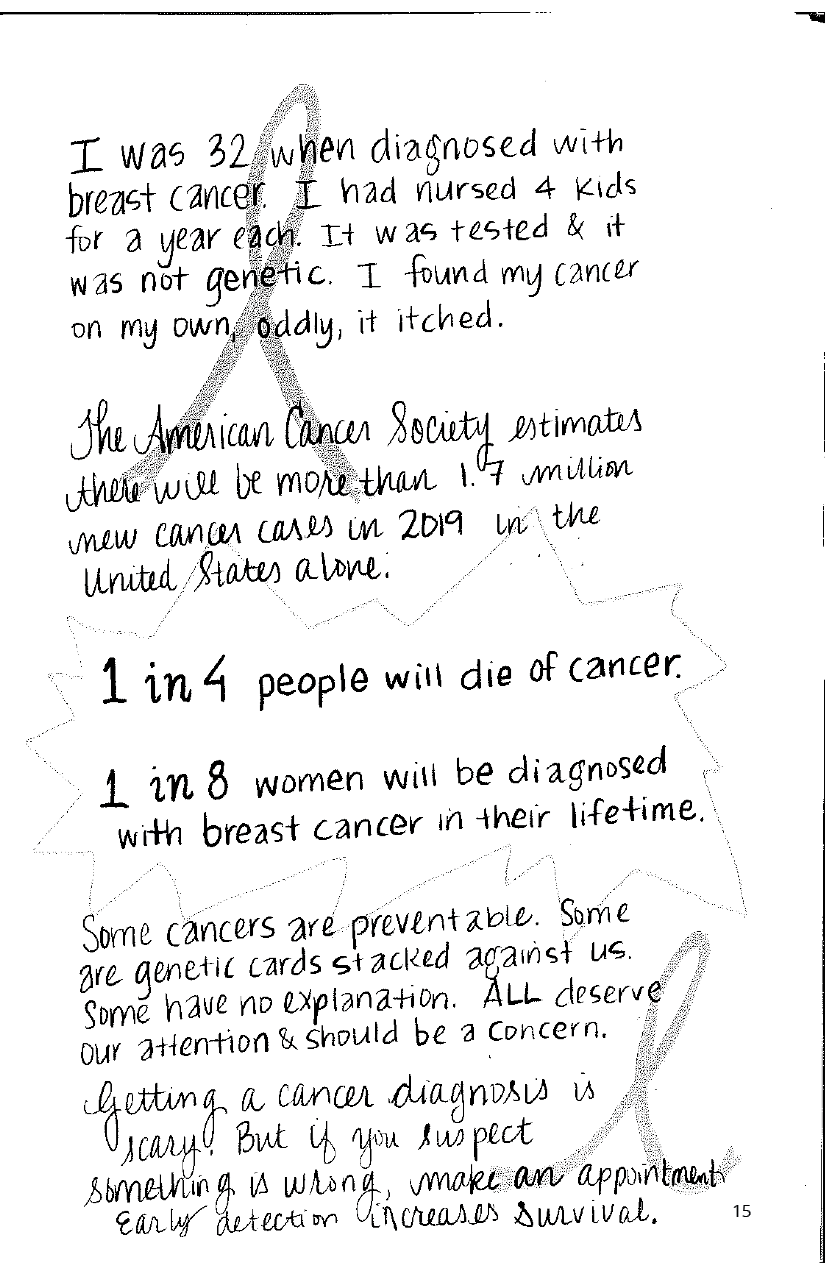 I was 32 when diagnosed with
breast cancer. I had nursed 4 kids
for a year each. It was tested & it
was not genetic. I found my cancer
on my own, oddly, it itched.
The American Cancer Society estimates
there will be more than 1.7 million
new cancer cases in 2019 in the
United States alone.
1 in 4 people will die of cancer.
1 in 8 women will be diagnosed
with breast cancer in their lifetime.
Some cancers are preventable. Some
are genetic cards stacked against us.
Some have no explanation. ALL deserve
our attention & should be a concern.
Getting a cancer diagnosis is
scary! But if you suspect
something is wrong, make an appointment.
Early detection increases survival.
15